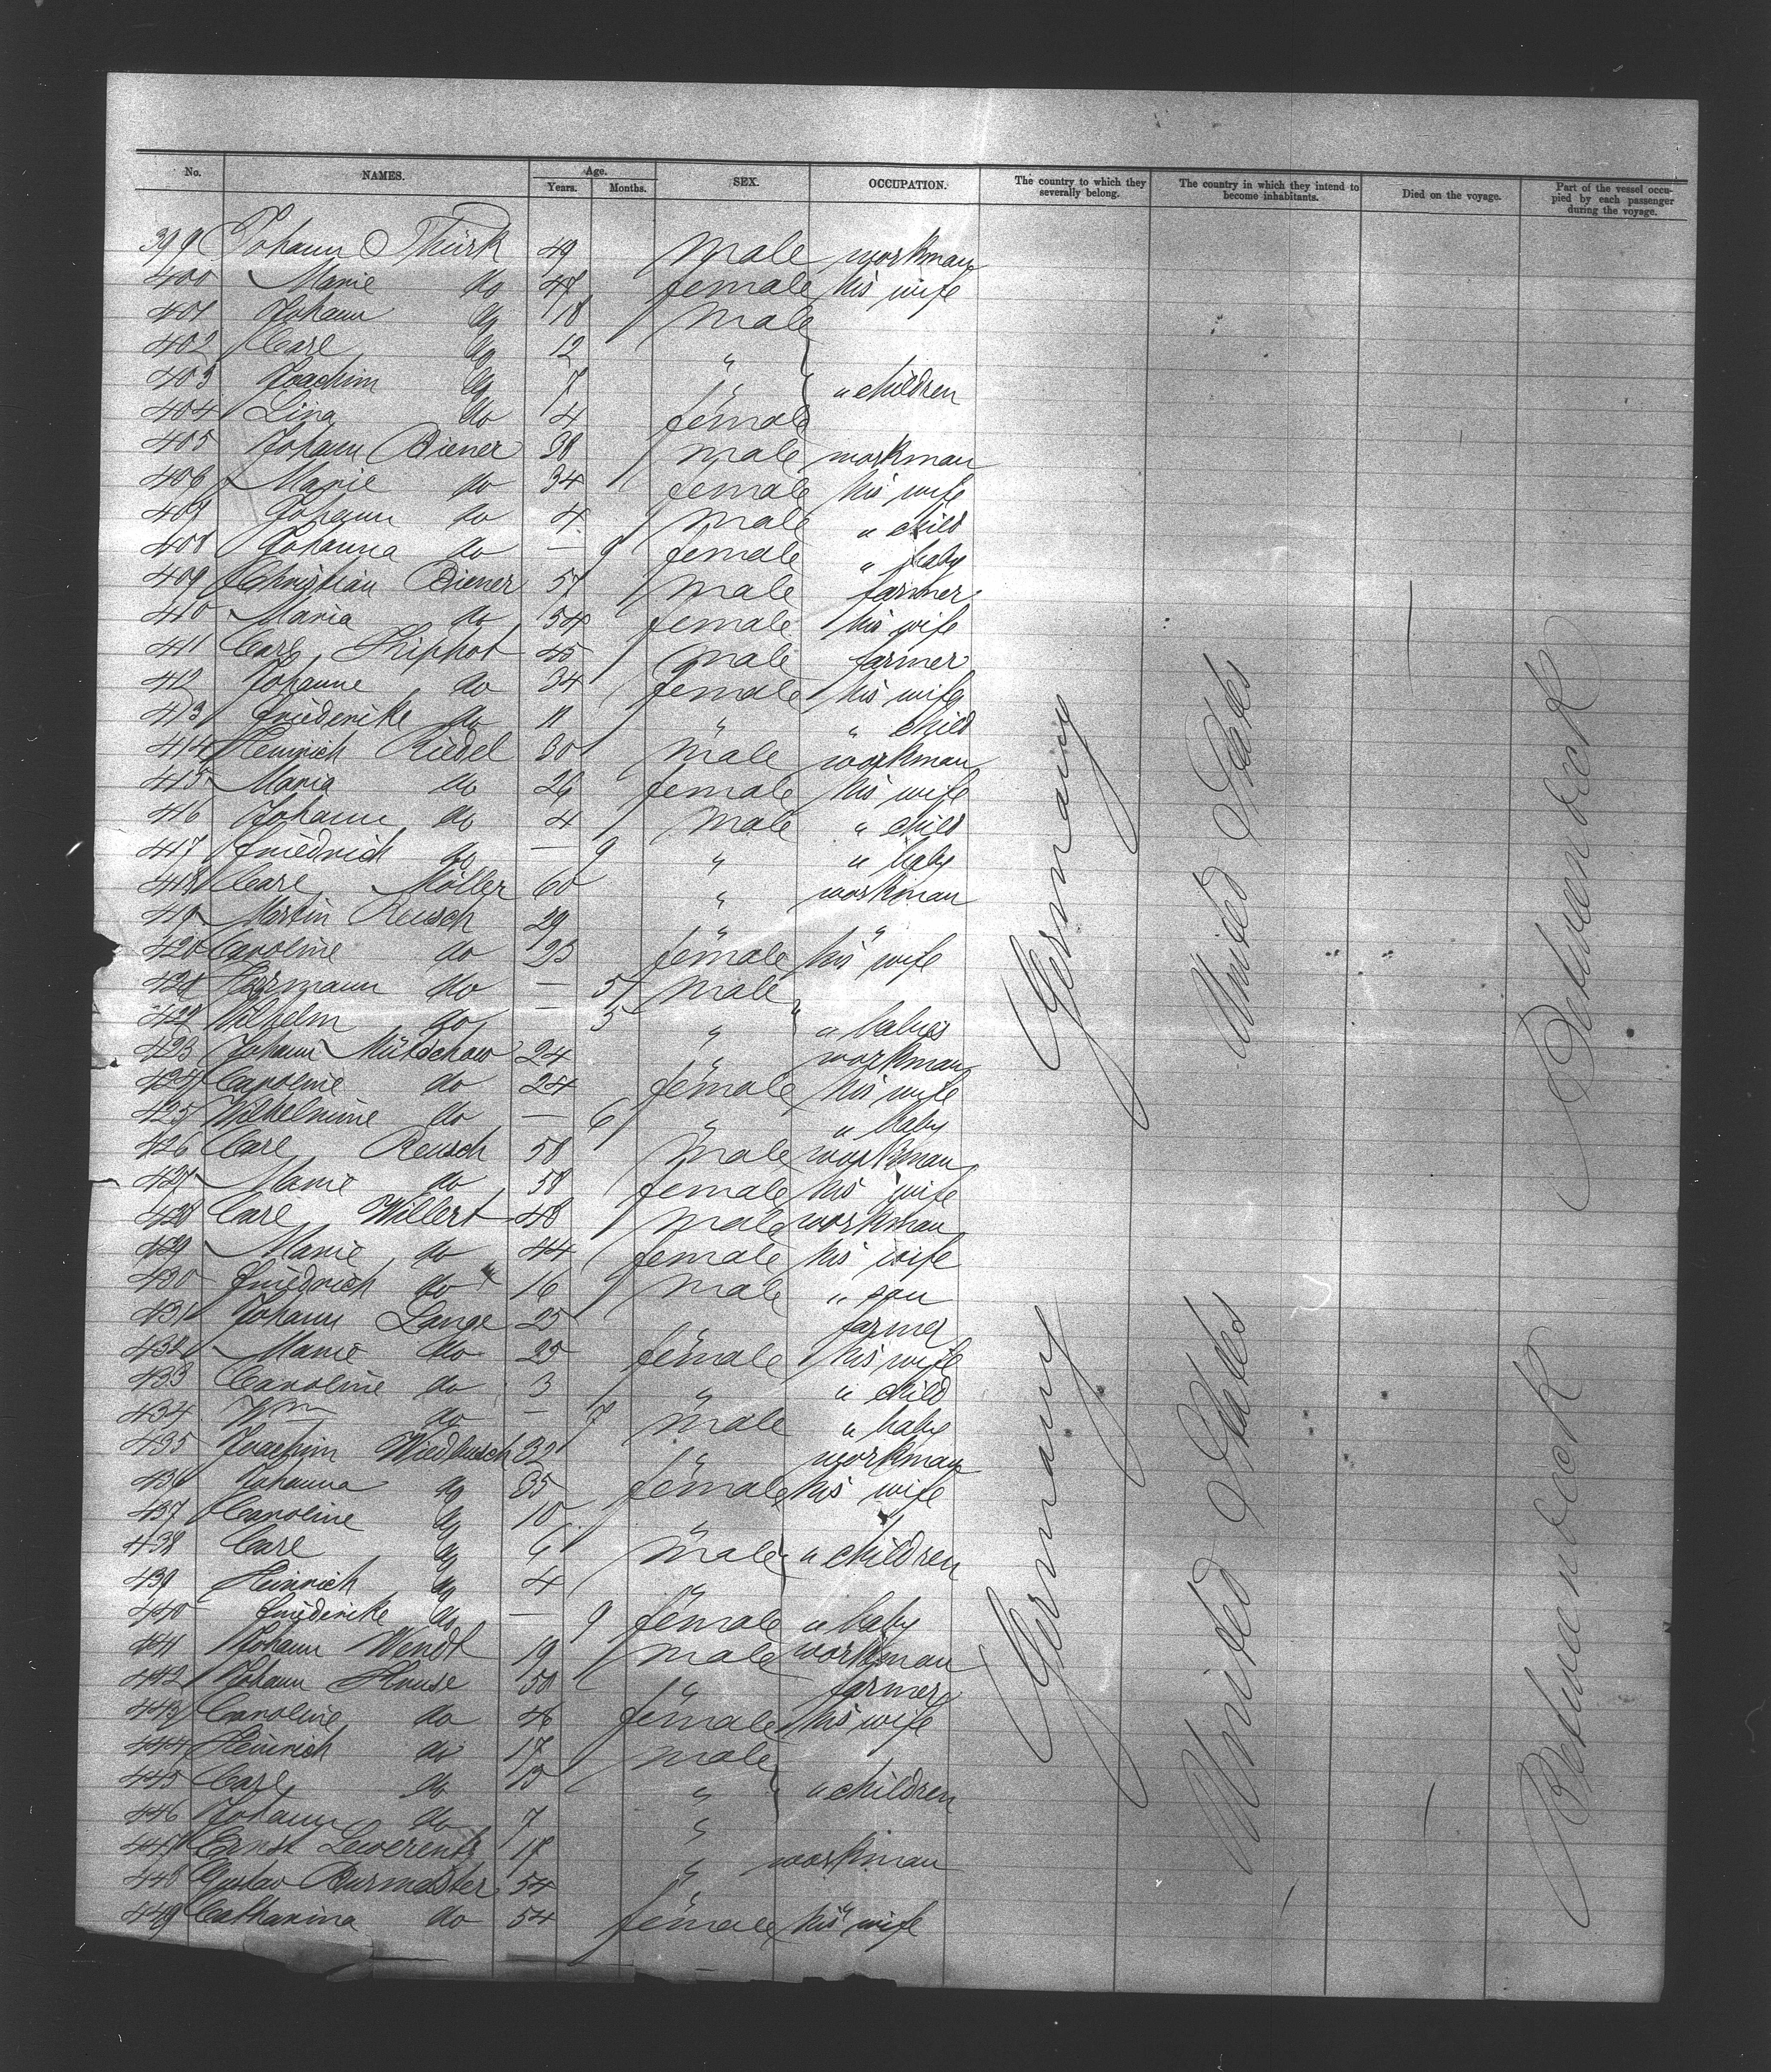 No. NAMES. Age. Years. Months. SEX. OCCUPATION. The country to which they severally belong. The country in which they intend to become inhabitants. Died on the voyage. Part of the vessel occupied by each passenger during the voyage.
399 Johann Thürk 49 male workman
400 Marie do 47 female his wife
401 Johann do 18 male
402 Carl do 12 "
403 Joachim do 7 " " children
404 Lina do 4 female
405 Johann Diener 38 male workman
406 Marie do 34 female his wife
407 Johann do 4 male " child
408 Johanna do — 9 female " baby
409 Christian Diener 57 male farmer
410 Maria do 54 female his wife
411 Carl 45 male farmer
412 Johanne do 34 female his wife
413 Friederike do 11 " " child
414 Heinrich Riedel 30 male workman
415 Maria do 26 female his wife
416 Johann do 4 male " child
417 Friedrich do — 9 " " baby
418 Carl Möller 60 " workman
419 Martin Reusch 29 " "
420 Caroline do 23 female his wife
421 Hermann do — 5 male
422 Wilhelm do — 5 " " babies
423 Johann Mütschow 24 " workman
424 Caroline do 24 female his wife
425 Wilhelmine do — 6 " " baby
426 Carl Reusch 58 male workman
427 Marie do 58 female his wife
428 Carl Willert 48 male workman
429 Marie do 44 female his wife
430 Friedrich do 16 male " son
431 Johann Lange 25 " farmer
432 Marie do 25 female his wife
433 Caroline do 3 " " child
434 Wm do — 7 male " baby
435 Joachim Wiedbusch 32 " workman
436 Johanna do 35 female his wife
437 Caroline do 10 "
438 Carl do 6 male " children
439 Heinrich do 4 "
440 Friederike do — 9 female " baby
441 Johann Wendt 19 male workman
442 Johann Kruse 50 " farmer
443 Caroline do 46 female his wife
444 Heinrich do 17 male
445 Carl do 13 " " children
446 Johann do 7 "
447 Ernst Lewerentz 17 " workman
448 Gustav Burmeister 54 " "
449 Catharina do 54 female his wife
Germany United States — Betweendeck
Germany United States — Betweendeck